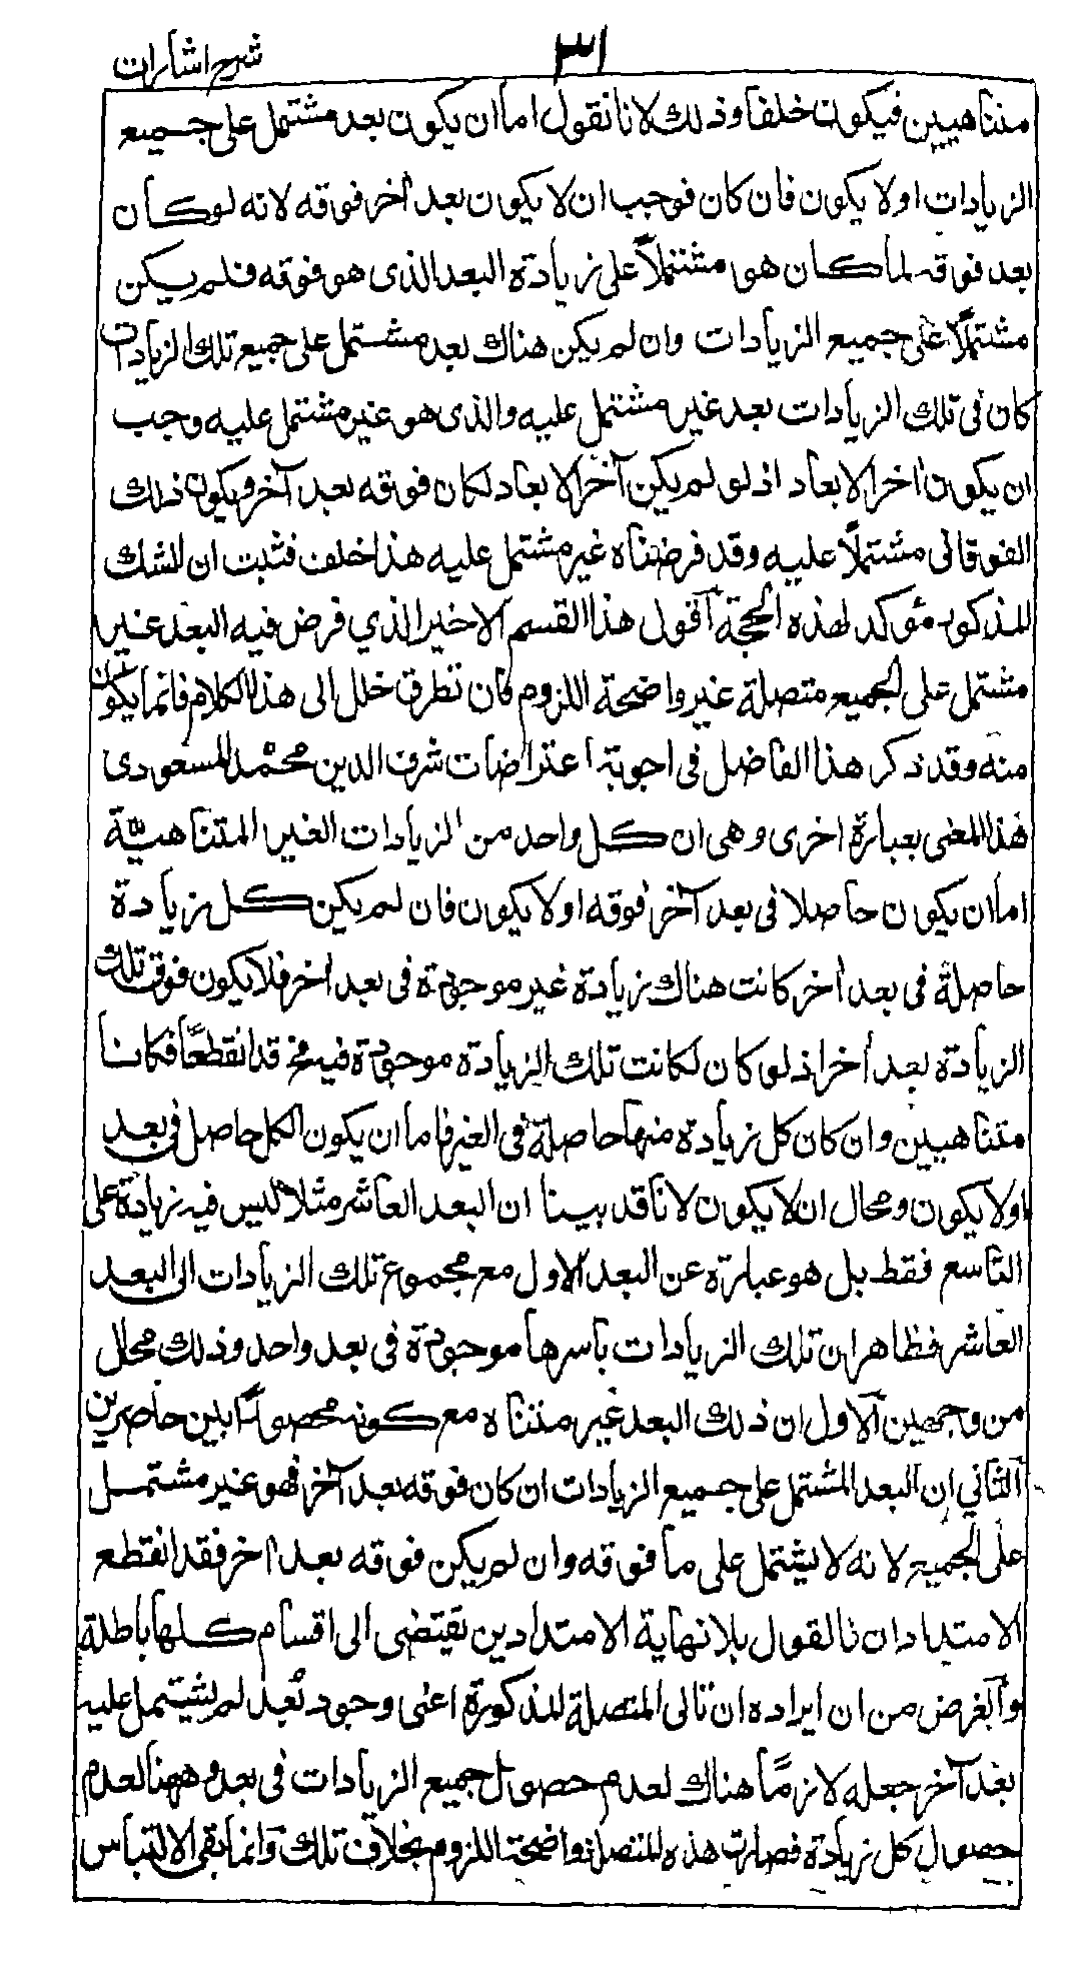 ٣١
شرح اشارات
متناهيين فيكون خلفا وذلك لانا نقول اما ان يكون بعد مشتمل على جميع
الزيادات اولا يكون فان كان فوجب ان لا يكون بعد أخر فوقه لانه لو كان
بعد فوقه لما كان هو مشتملاً على زيادة البعد الذى هو فوقه فلم يكن
مشتملًا على جميع الزيادات وان لم يكن هناك بعد مشتمل على جميع تلك الزيادات
كان فى تلك الزيادات بعد غير مشتمل عليه والذى هو غير مشتمل عليه وجب
ان يكون أخر الابعاد اذ لو لم يكن آخر الابعاد لكان فوقه بعد آخر ويكون ذلك
الفوقانى مشتملًا عليه وقد فرضناه غير مشتمل عليه هذا خلف فثبت ان الشك
المذكور مؤكد لهذه الحجة آقول هذا القسم الاخير الذي فرض فيه البعد غير
مشتمل على الجميع متصلة غير واضحة اللزوم فان تطرق خلل الى هذا الكلام فانما يكون
منه وقد ذكر هذا الفاضل فى اجوبة اعتراضات شرف الدين محمد المسعودى
هذا المعنى بعبارة اخرى وهى ان كل واحد من الزيادات الغير المتناهيّة
اما ان يكون حاصلا فى بعد آخر فوقه اولا يكون فان لم يكن كل زيادة
حاصلة فى بعد أخر كانت هناك زيادة غير موجودة فى بعد أخر فلا يكون فوق تلك
الزيادة بعد أخر اذ لو كان لكانت تلك الزيادة موجودة فيه فح قد انقطعًا فكانا
متناهيين وان كان كل زيادة منها حاصلة فى الغير فاما ان يكون الكل حاصل فى بعد
اولا يكون ومحال ان لا يكون لانا قد بينا ان البعد العاشر مثلا ليس فيه زيادة على
التاسع فقط بل هو عبارة عن البعد الاول مع مجموع تلك الزيادات الى البعد
العاشر فظاهر ان تلك الزيادات باسرها موجودة فى بعد واحد وذلك محال
من وجهين آلاول ان ذلك البعد غير متناه مع كونه محصورًا بين حاصرين
آلثاني ان البعد المشتمل على جميع الزيادات ان كان فوقه بعد آخر فهو غير مشتمل
على الجميع لانه لا يشتمل على ما فوقه وان لم يكن فوقه بعد أخر فقد انقطع
الامتدادان فالقول بلا نهاية الامتدادين يقتضى الى اقسام كلها باطلة
وآلغرض من ان ايراده ان تالى المتصلة المذكورة اعنى وجود بُعد لم يشتمل عليه
بعد آخر جعله لازمًا هناك لعدم حصول جميع الزيادات فى بعد وههنا لعدم
حصول كل زيادة فصارت هذه المتصلة واضحة اللزوم بخلاف تلك وانما بقى الالتباس